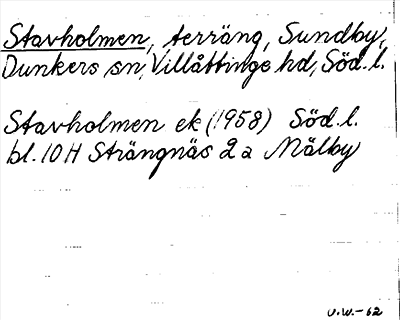 Stavholmen, terräng, Sundby,
Dunkers sn, Villåttinge hd, Söd. l.
Stavholmen ek (1958) Söd. l.
bl. 10 H Strängnäs 2 a Mälby
U.W.-62